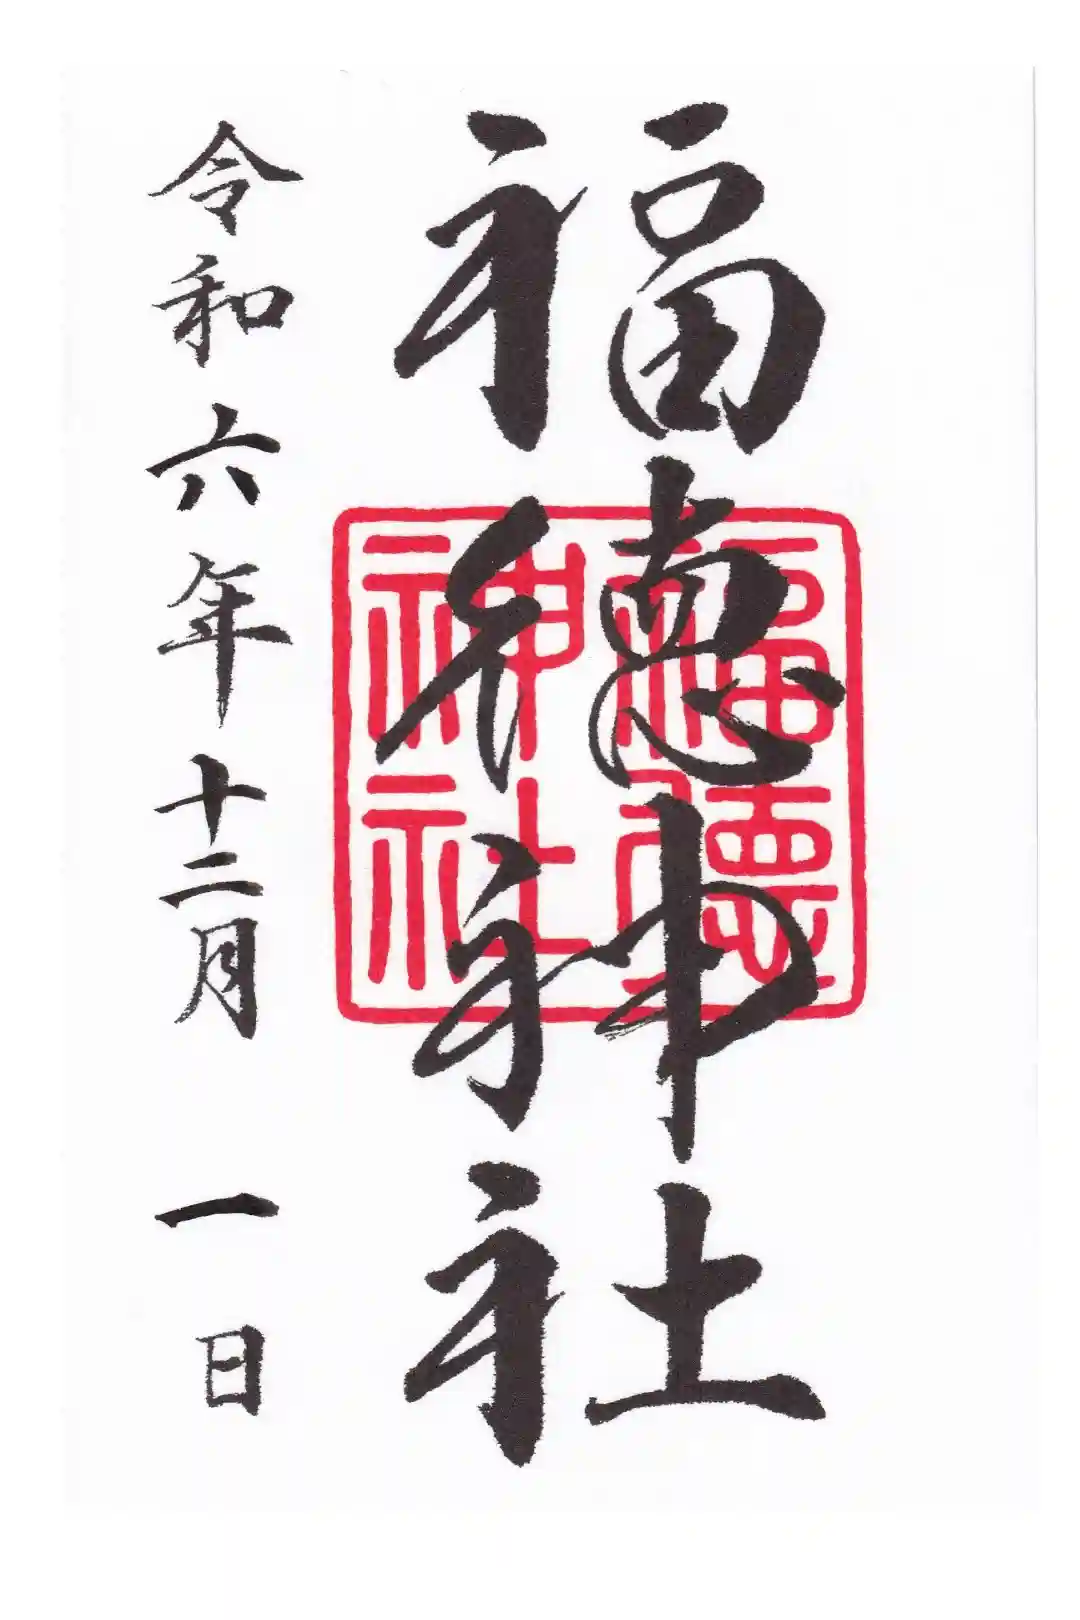 福徳神社
令和六年十二月一日
福徳
神社